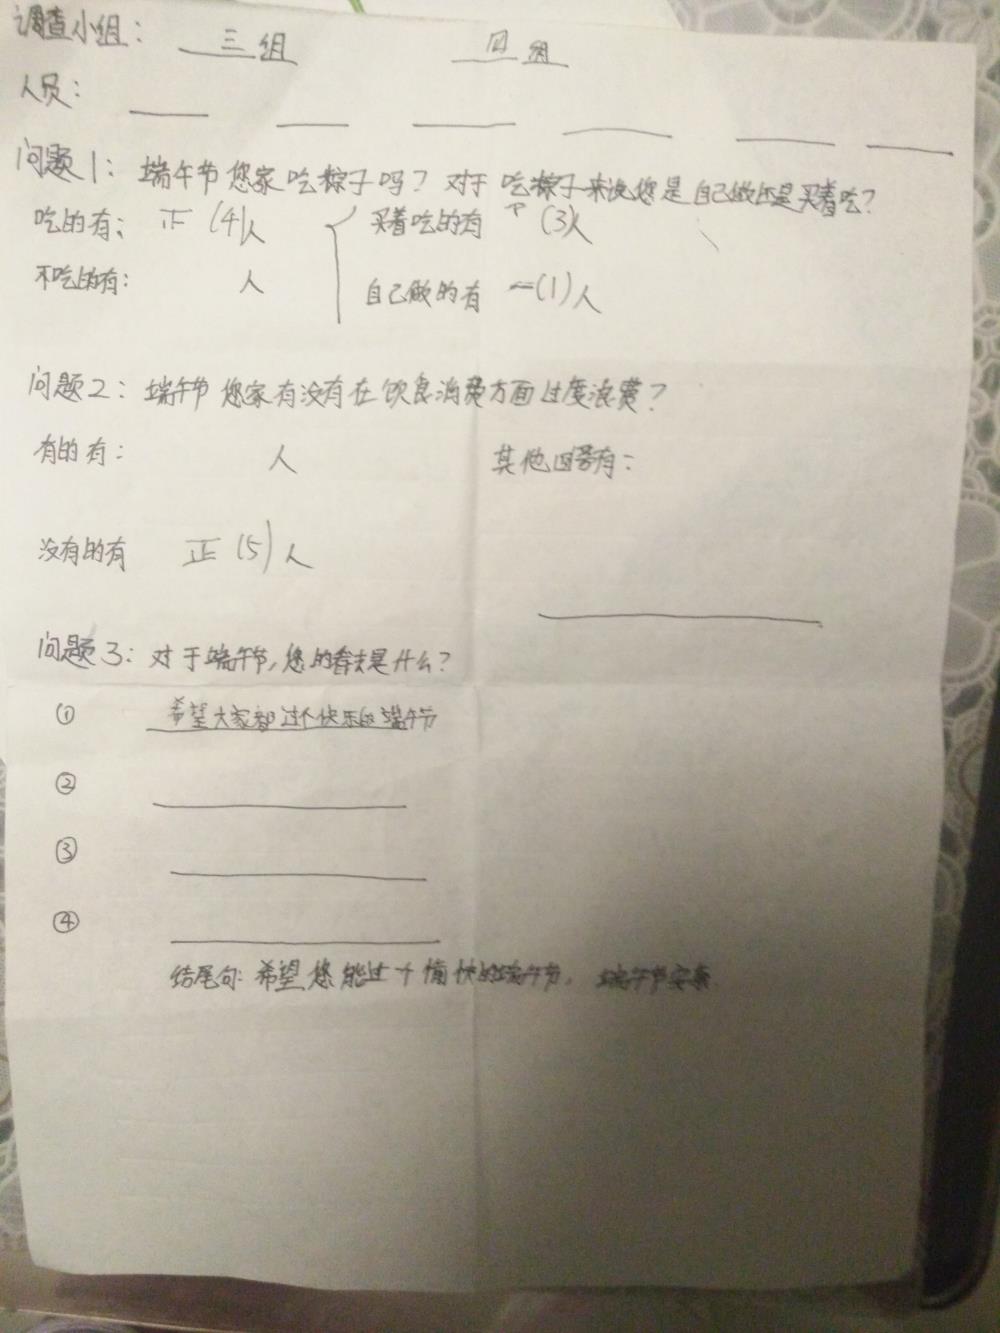 调查小组: 三组 四组
人员:
问题1: 端午节您家吃粽子吗? 对于吃粽子来说您是自己做还是买着吃?
吃的有: (4)人 买着吃的有 (3)人
不吃的有: 人 自己做的有 一(1)人
问题2: 端午节您家有没有在饮食消费方面过度浪费?
有的有: 人 其他回答有:
没有的有 正(5)人
问题3: 对于端午节,您的看法是什么?
① 希望大家都过个快乐的端午节
②
③
④
结尾句: 希望您能过个愉快的端午节, 端午节安康